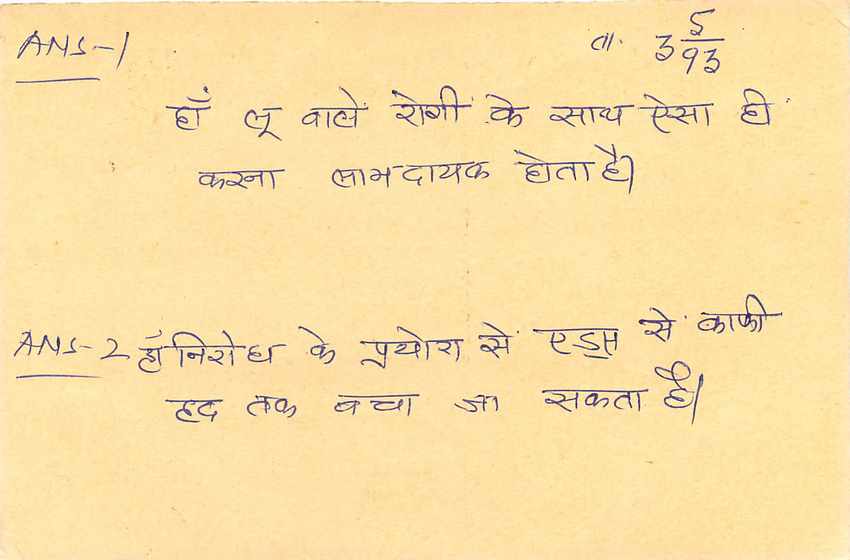 ANS-1
ता. 3 5/93
हाँ लू वाले रोगी के साथ ऐसा ही
करना लाभदायक होता है।
ANS-2 हाँ निरोध के प्रयोग से एड्स से काफी
हद तक बचा जा सकता है।